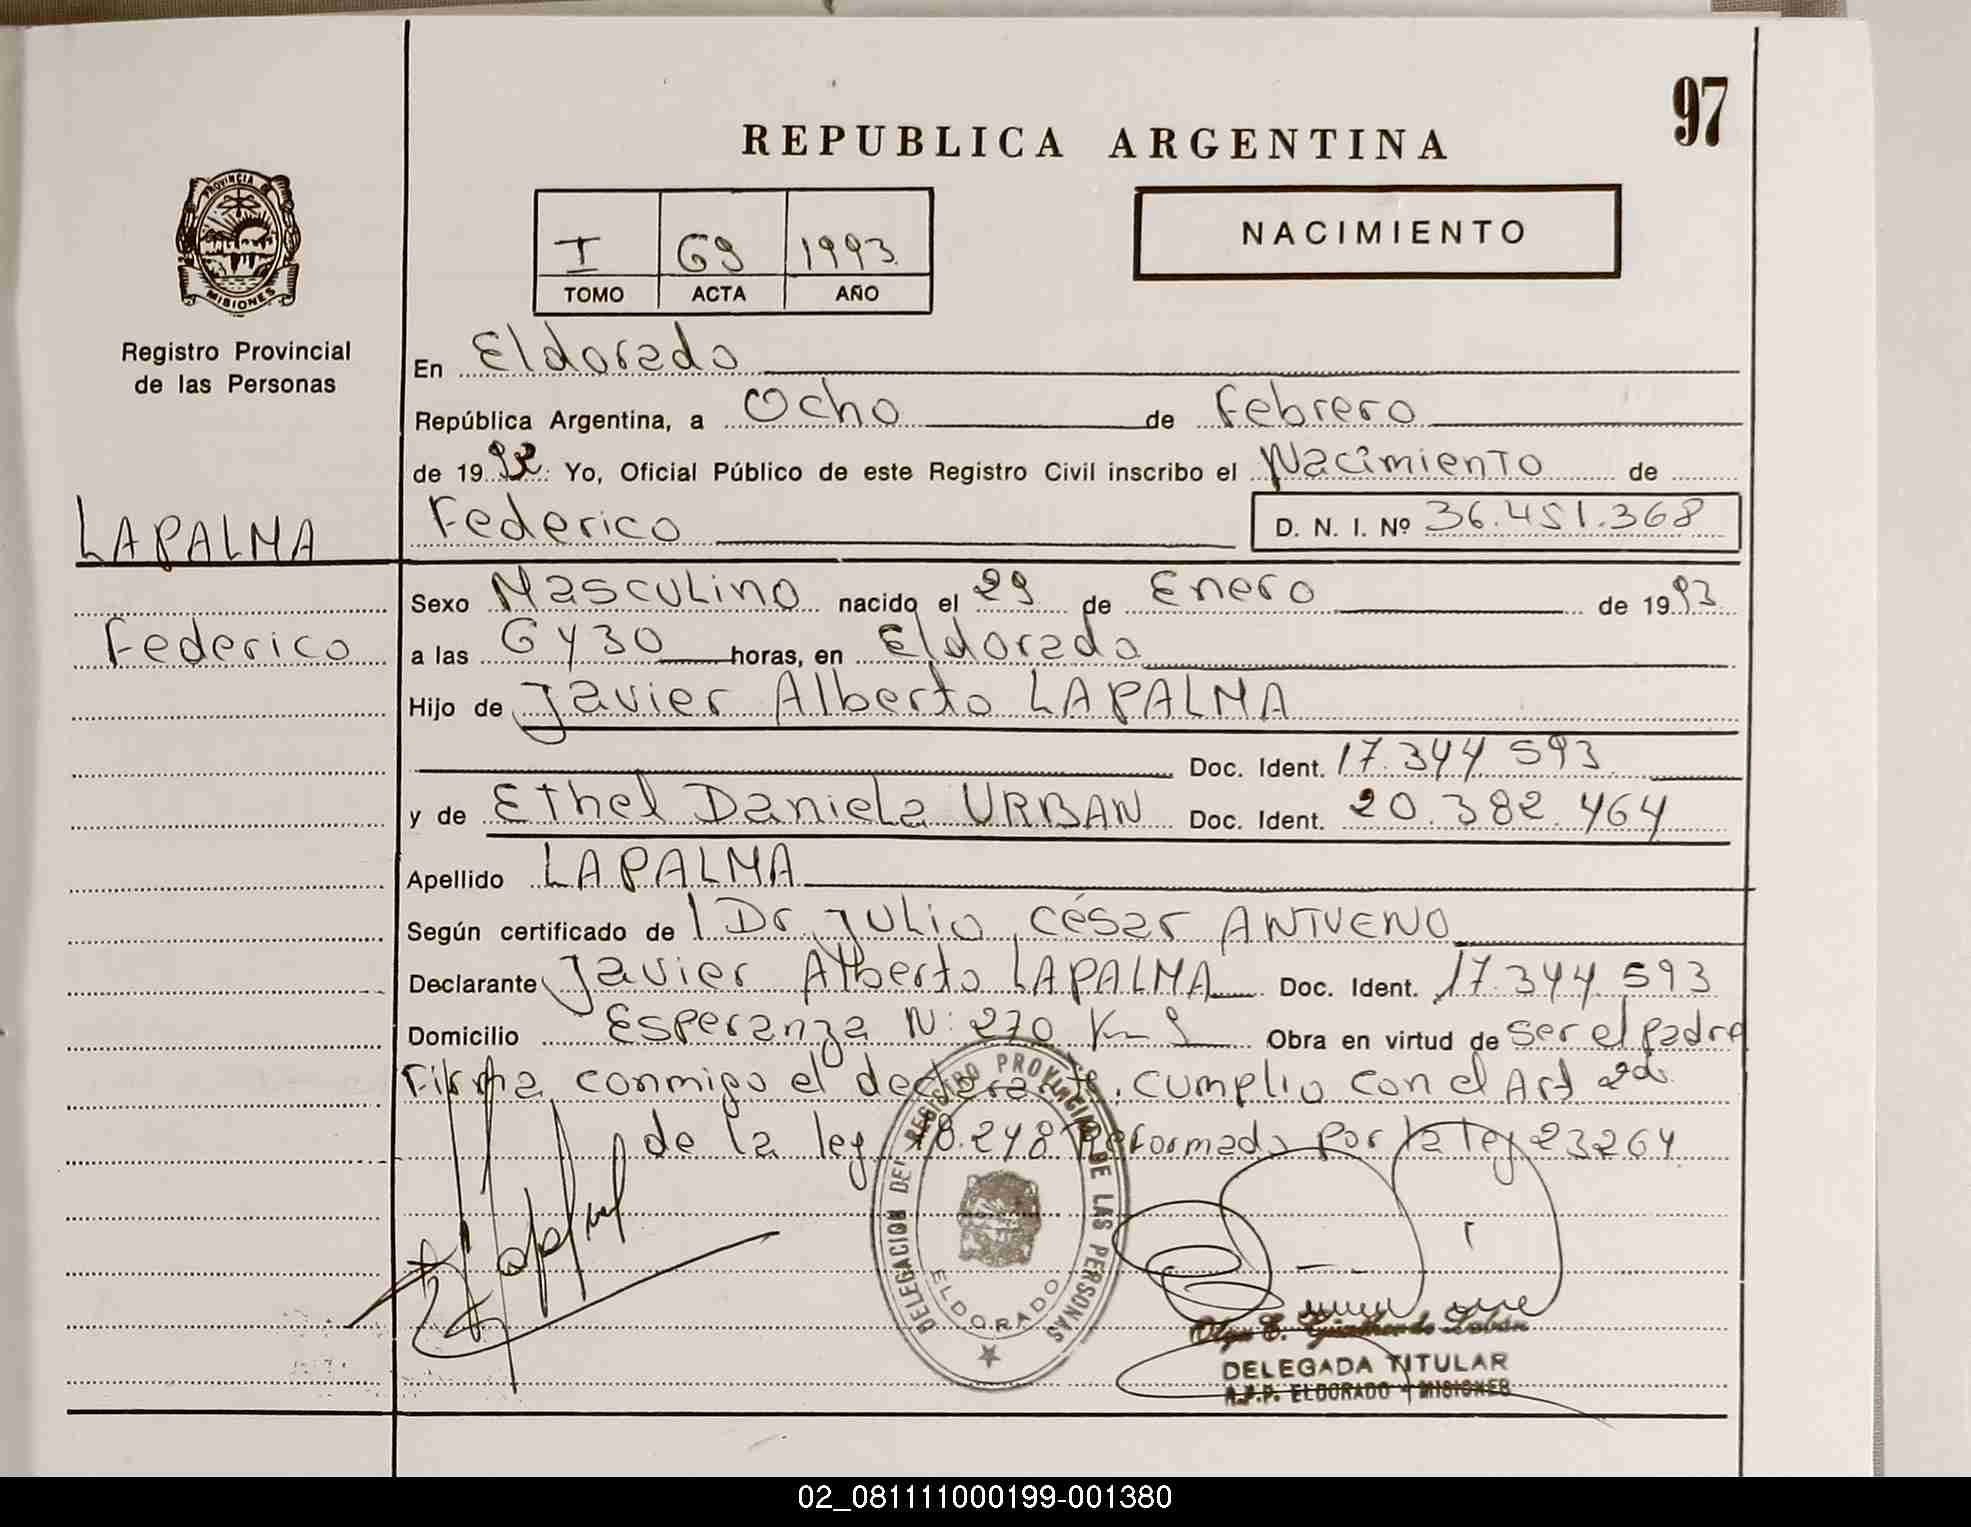 97
REPUBLICA ARGENTINA
PROVINCIA
MISIONES
I 69 1993
TOMO ACTA AÑO
NACIMIENTO
Registro Provincial
de las Personas
En Eldorado
República Argentina, a Ocho de Febrero
de 1993 Yo, Oficial Público de este Registro Civil inscribo el Nacimiento de
LAPALMA
Federico D. N. I. Nº 36.451.368
Sexo Masculino nacido el 29 de Enero de 1993
Federico
a las 6 y 30 horas, en Eldorado
Hijo de Javier Alberto LAPALMA
Doc. Ident. 17.344 593
y de Ethel Daniela URBAN Doc. Ident. 20.382.464
Apellido LAPALMA
Según certificado de Dr. Julio César ANTUENO
Declarante Javier Alberto LAPALMA Doc. Ident. 17.344 593
Domicilio Esperanza N: 270 Km 9 Obra en virtud de ser el padre
Firma conmigo el declarante, cumplio con el Art 2do.
de la ley 18.248 Reformada por la ley 23264
DELEGACION DEL REGISTRO PROVINCIAL DE LAS PERSONAS
ELDORADO
Olga E. de
DELEGADA TITULAR
R.P.P. ELDORADO - MISIONES
02_081111000199-001380